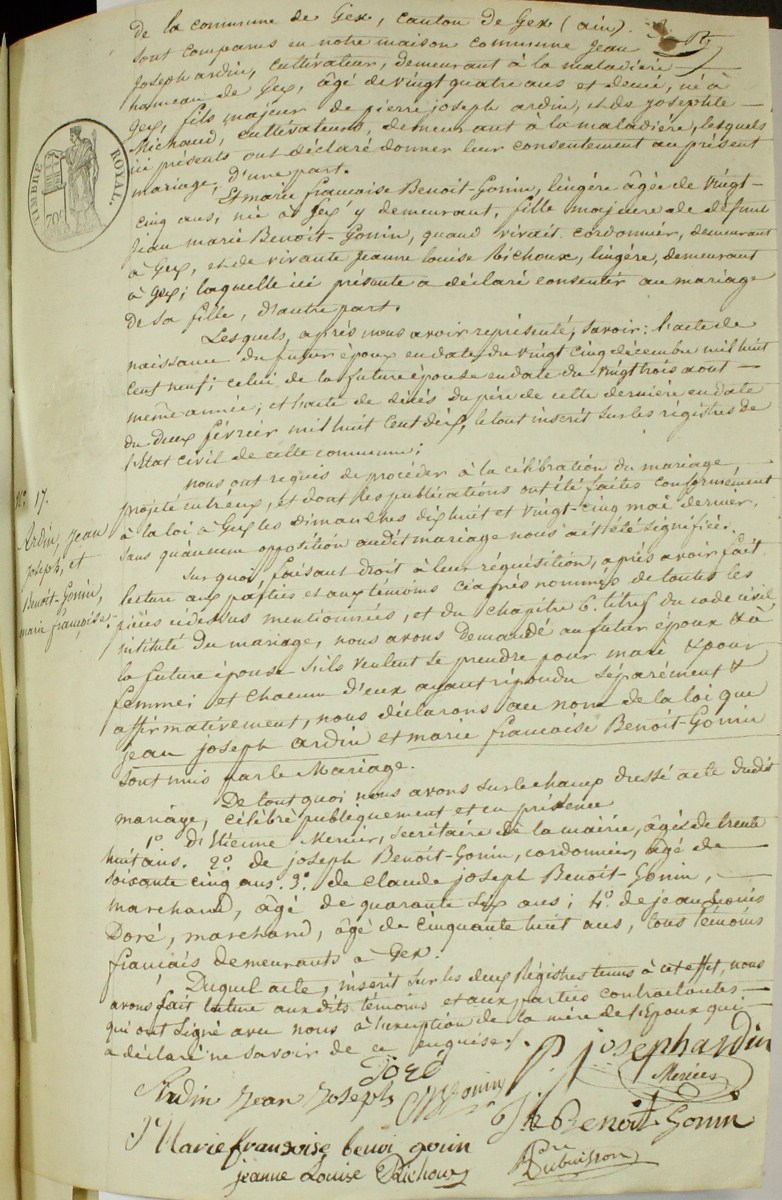 de la commune de Gex, canton de Gex (ain).
sont comparus en notre maison commune Jean
Joseph ardin, cultivateur, demeurant à la maladière
hameau de Gex, âgé de vingt quatre ans et demi, né à
Gex, fils majeur de pierre joseph ardin, et de josephte
Michaud, cultivateurs, demeurant à la maladière, lesquels
ici présents ont déclaré donner leur consentement au présent
mariage, d'une part.
TIMBRE ROYAL.
70c
Et marie francoise Benoit-Gonin, lingère âgée de vingt-
cinq ans, née à Gex y demeurant, fille majeure de défunt
Jean marie Benoit-Gonin, quand vivait cordonnier, demeurant
à Gex, et de vivante Jeanne Louise Richoux, lingère, demeurant
à Gex; laquelle ici présente a déclaré consentir au mariage
de sa fille, d'autre part.
Lesquels, après nous avoir représenté, savoir: l'acte de
naissance du futur époux en date du vingt cinq décembre mil huit
cent neuf; celui de la future épouse en date du vingt trois aout
même année; et l'acte de décès du père de cette dernière en date
du deux février mil huit cent dix, le tout inscrit sur les registres de
l'Etat civil de cette commune;
nous ont requis de procéder à la célébration du mariage,
projeté entr'eux, et dont les publications ont été faites conformément
à la loi à Gex les dimanches dix huit et vingt-cinq mai dernier,
sans qu'aucune opposition audit mariage nous ait été signifiée.
N° 17.
Ardin, Jean
Joseph, et
Benoit-Gonin,
marie françoise.
Sur quoi, faisant droit à leur réquisition, après avoir fait
lecture aux parties et aux témoins ci après nommés de toutes les
pièces ci dessus mentionnées, et du chapitre 6. titre 5 du code civil
intitulé du mariage, nous avons demandé au futur époux & à
la future épouse s'ils veulent se prendre pour mari & pour
femme; et chacun d'eux ayant répondu séparément &
affirmativement, nous déclarons au nom de la loi que
jean joseph ardin et marie francoise Benoit-Gonin
sont unis par le Mariage.
De tout quoi nous avons sur le champ dressé acte dudit
mariage, célébré publiquement et en présence
1° d'Etienne Mercier, secrétaire de la mairie, âgé de trente
huit ans. 2° de joseph Benoit-Gonin, cordonnier, âgé de
soixante cinq ans. 3° de claude joseph Benoit-Gonin,
marchand, âgé de quarante six ans; 4° de jean Louis
Doré, marchand, âgé de cinquante huit ans, tous témoins
français demeurants à Gex.
Duquel acte, inscrit sur les deux Régistres tenus à cet effet, nous
avons fait lecture aux dits témoins et aux parties contractantes
qui ont signé avec nous à l'exception de la mère de l'époux qui
a déclaré ne savoir de ce enquise.
P. joseph ardin
Doré
Mercier
Ardin Jean Joseph
Gonin
Benoit Gonin
Marie françoise benoi gonin
Dubuisson
jeanne Louise Richoux